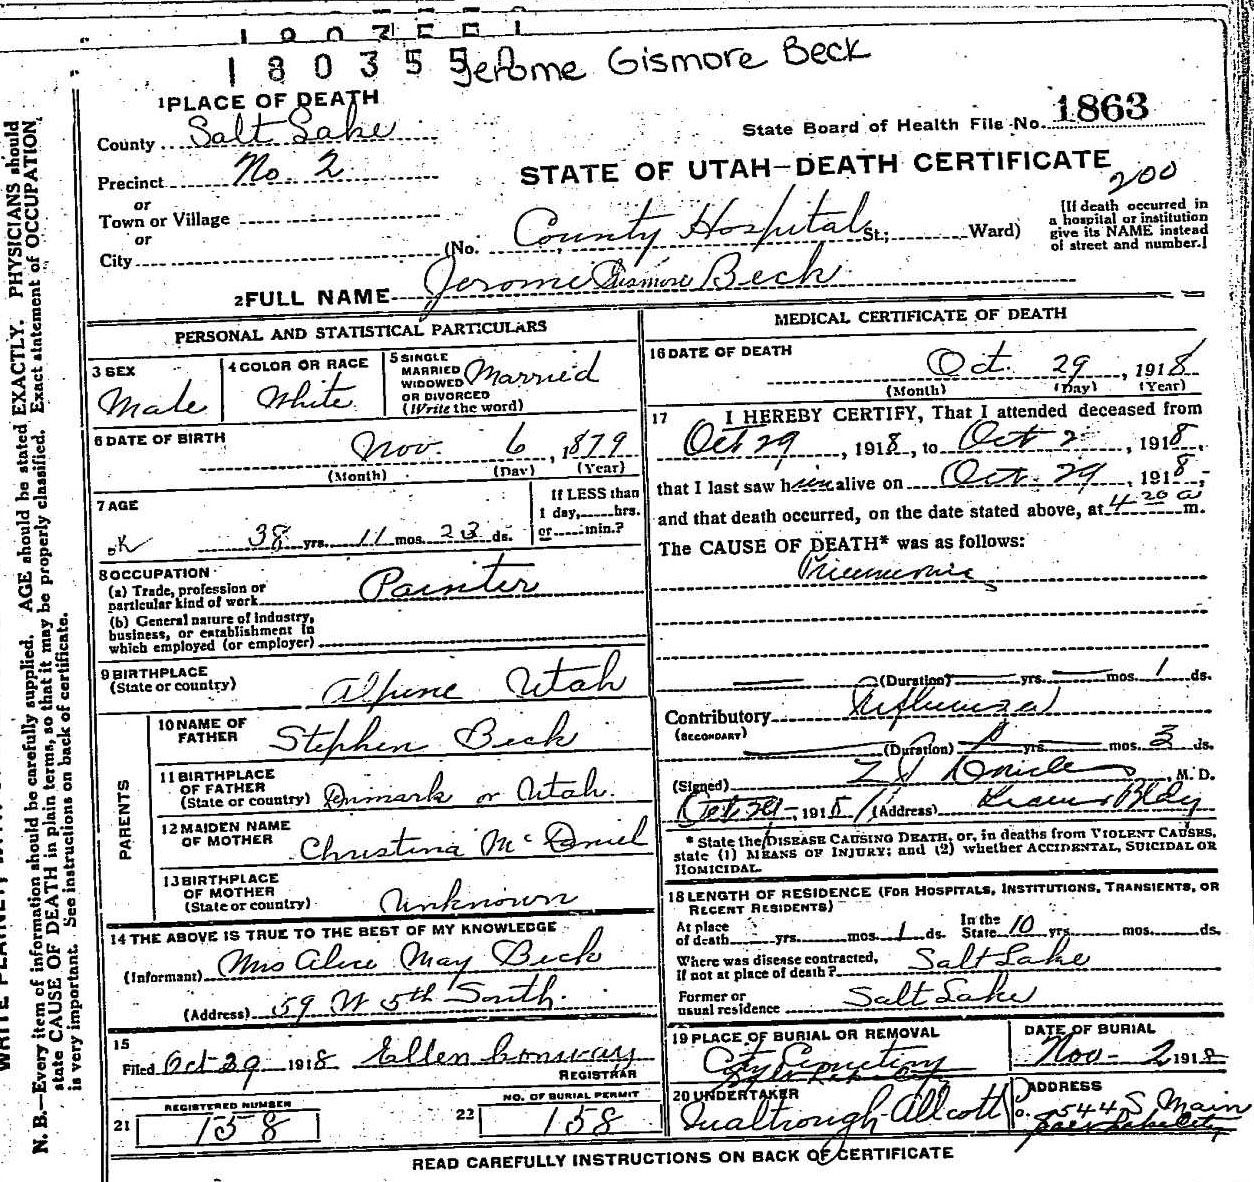 180355 Jerome Gismore Beck
1 PLACE OF DEATH
County Salt Lake
State Board of Health File No. 1863
Precinct No. 2
STATE OF UTAH—DEATH CERTIFICATE
200
or
Town or Village
or
City
(No. County Hospital St.; Ward)
[If death occurred in a hospital or institution give its NAME instead of street and number.]
2 FULL NAME Jerome Gismore Beck
PERSONAL AND STATISTICAL PARTICULARS
3 SEX Male
4 COLOR OR RACE White
5 SINGLE MARRIED WIDOWED OR DIVORCED (Write the word) Married
6 DATE OF BIRTH Nov. 6, 1879
(Month) (Day) (Year)
7 AGE
If LESS than 1 day, hrs. or min.?
OK 38 yrs. 11 mos. 23 ds.
8 OCCUPATION
(a) Trade, profession or particular kind of work Painter
(b) General nature of industry, business, or establishment in which employed (or employer)
9 BIRTHPLACE
(State or country) Alpine Utah
PARENTS
10 NAME OF FATHER Stephen Beck
11 BIRTHPLACE OF FATHER
(State or country) Denmark or Utah.
12 MAIDEN NAME OF MOTHER Christina McDaniel
13 BIRTHPLACE OF MOTHER
(State or country) Unknown
14 THE ABOVE IS TRUE TO THE BEST OF MY KNOWLEDGE
(Informant) Mrs Alice May Beck
(Address) 59 W 5th South.
15
Filed Oct 29 1918 Ellen Conway
REGISTRAR
21 REGISTERED NUMBER 158
22 NO. OF BURIAL PERMIT 158
MEDICAL CERTIFICATE OF DEATH
16 DATE OF DEATH Oct. 29, 1918
(Month) (Day) (Year)
17 I HEREBY CERTIFY, That I attended deceased from
Oct 29, 1918, to Oct 2, 1918,
that I last saw him alive on Oct. 29, 1918,
and that death occurred, on the date stated above, at 4 20 a m.
The CAUSE OF DEATH* was as follows:
Pneumonia
(Duration) yrs. mos. 1 ds.
Contributory Influenza
(SECONDARY)
(Duration) yrs. mos. 3 ds.
(Signed) M. D.
Oct 29, 1918 (Address) Bldg
* State the DISEASE CAUSING DEATH, or, in deaths from VIOLENT CAUSES,
state (1) MEANS OF INJURY; and (2) whether ACCIDENTAL, SUICIDAL OR
HOMICIDAL.
18 LENGTH OF RESIDENCE (FOR HOSPITALS, INSTITUTIONS, TRANSIENTS, OR
RECENT RESIDENTS)
At place of death yrs. mos. 1 ds. In the State 10 yrs. mos. ds.
Where was disease contracted, if not at place of death? Salt Lake
Former or usual residence Salt Lake
19 PLACE OF BURIAL OR REMOVAL
City Cemetery
DATE OF BURIAL
Nov- 2 1918
20 UNDERTAKER
Qualtrough-Allcott Co.
ADDRESS
544 S Main
Salt Lake City
READ CAREFULLY INSTRUCTIONS ON BACK OF CERTIFICATE
N. B.—Every item of information should be carefully supplied. AGE should be stated EXACTLY. PHYSICIANS should
state CAUSE OF DEATH in plain terms, so that it may be properly classified. Exact statement of OCCUPATION
is very important. See instructions on back of certificate.